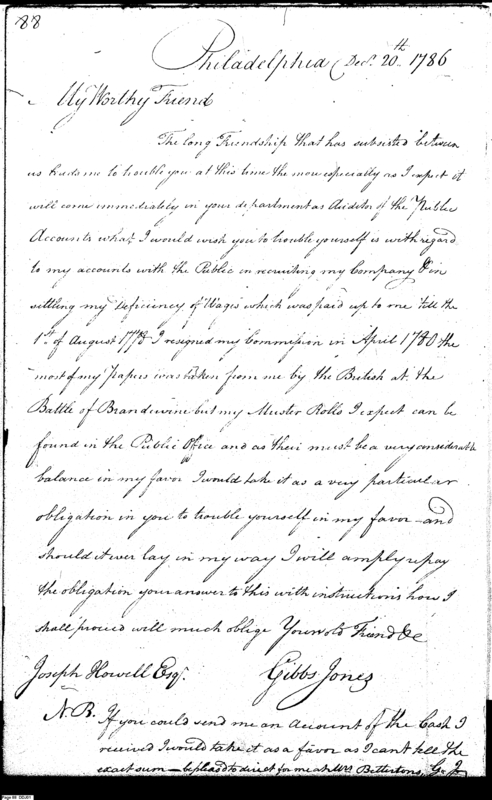 88
Philadelphia Decr. 20th 1786
My Worthy Friend
The long Friendship that has subsisted between
us leads me to trouble you at this time the more especially as I expect it
will come immediately in your department as Auditor of the Public
Accounts what I would wish you to trouble yourself is with regard
to my accounts with the Public in recruiting my Company & in
settling my Deficiency of Wages which was paid up to me till the
1st. of August 1778 I resigned my Commission in April 1780 the
most of my Papers was taken from me by the British at the
Battle of Brandewine but my Muster Rolls I expect can be
found in the Public Office and as their must be a very considerable
balance in my favor I would take it as a very particular
obligation in you to trouble yourself in my favor - and
should it ever lay in my way I will amply repay
the obligation your answer to this with instructions how I
shall proceed will much oblige Your old Friend &c
Joseph Howell Esqr. Gibbs Jones
N.B. If you could send me an account of the Cash I
received I would take it as a favor as I cant tell the
exact sum - be pleasd to direct for me at Mrs Bettertons, G. J.
Page 88